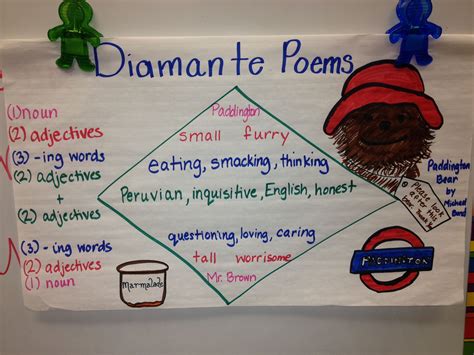 Diamante Poems
(1) noun
(2) adjectives
(3) -ing words
(2) adjectives
+
(2) adjectives
(3) - ing words
(2) adjectives
(1) noun
Paddington
small furry
eating, smacking, thinking
Peruvian, inquisitive, English, honest
questioning, loving, caring
tall worrisome
Mr. Brown
Marmalade
Paddington
Bear
by
Michael
Bond
Please look
after this
bear. Thank You
PADDINGTON